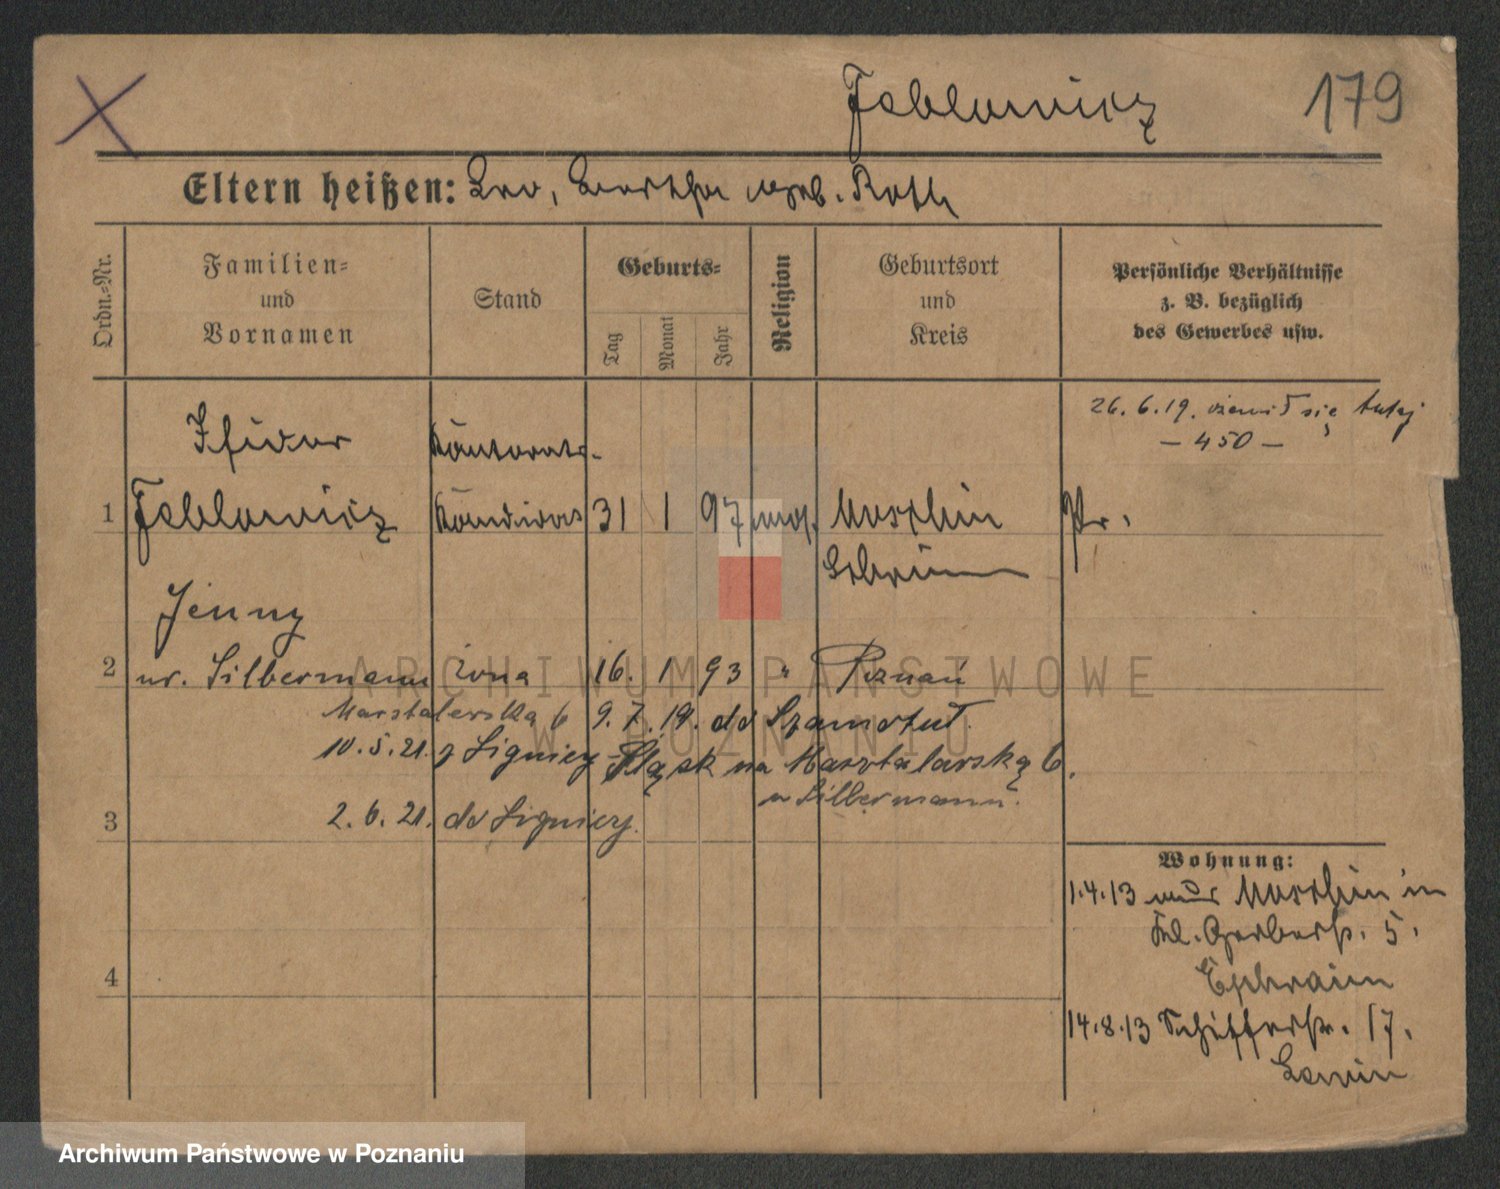 Jablowicz 179
Eltern heißen: Leo, Bertha geb. Roth
Ordn.-Nr.
Familien-
und
Vornamen
Stand
Geburts-
Tag
Monat
Jahr
Religion
Geburtsort
und
Kreis
Persönliche Verhältnisse
z. B. bezüglich
des Gewerbes usw.
26.6.19. ożenił się tutaj
– 450 –
Isidor
1 Jablowicz 31 1 97 mos. Moschin Pr.
Schrimm
Jenny
2 ur. Silbermann żona 16. 1 93 " Poznań
Masztalerska 6 9.7.19. do Szamotuł.
10.5.21. z Lignicy Śląsk na Masztalarską 6.
u Silbermann.
3 2.6.21. do Lignicy.
4
Wohnung:
1.4.13 aus Moschin in
Kl. Gerberstr. 5.
Ephraim
14.8.13 Schifferstr. 17.
Lewin
ARCHIWUM PAŃSTWOWE
W POZNANIU
Archiwum Państwowe w Poznaniu